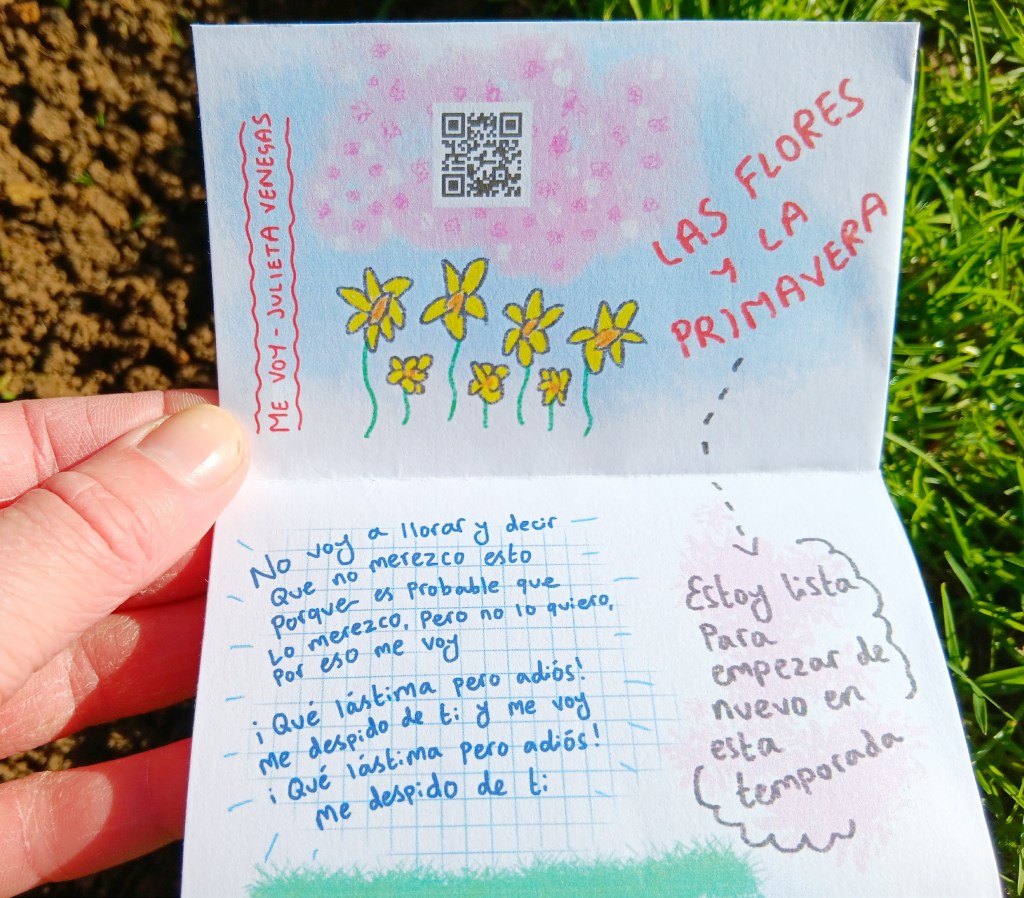 ME VOY - JULIETA VENEGAS
LAS FLORES
Y LA
PRIMAVERA
No voy a llorar y decir
Que no merezco esto
Porque es probable que
Lo merezco, pero no lo quiero,
Por eso me voy
¡Qué lástima pero adiós!
Me despido de ti y me voy
¡Qué lástima pero adiós!
Me despido de ti
Estoy lista
Para
empezar de
nuevo en
esta
temporada